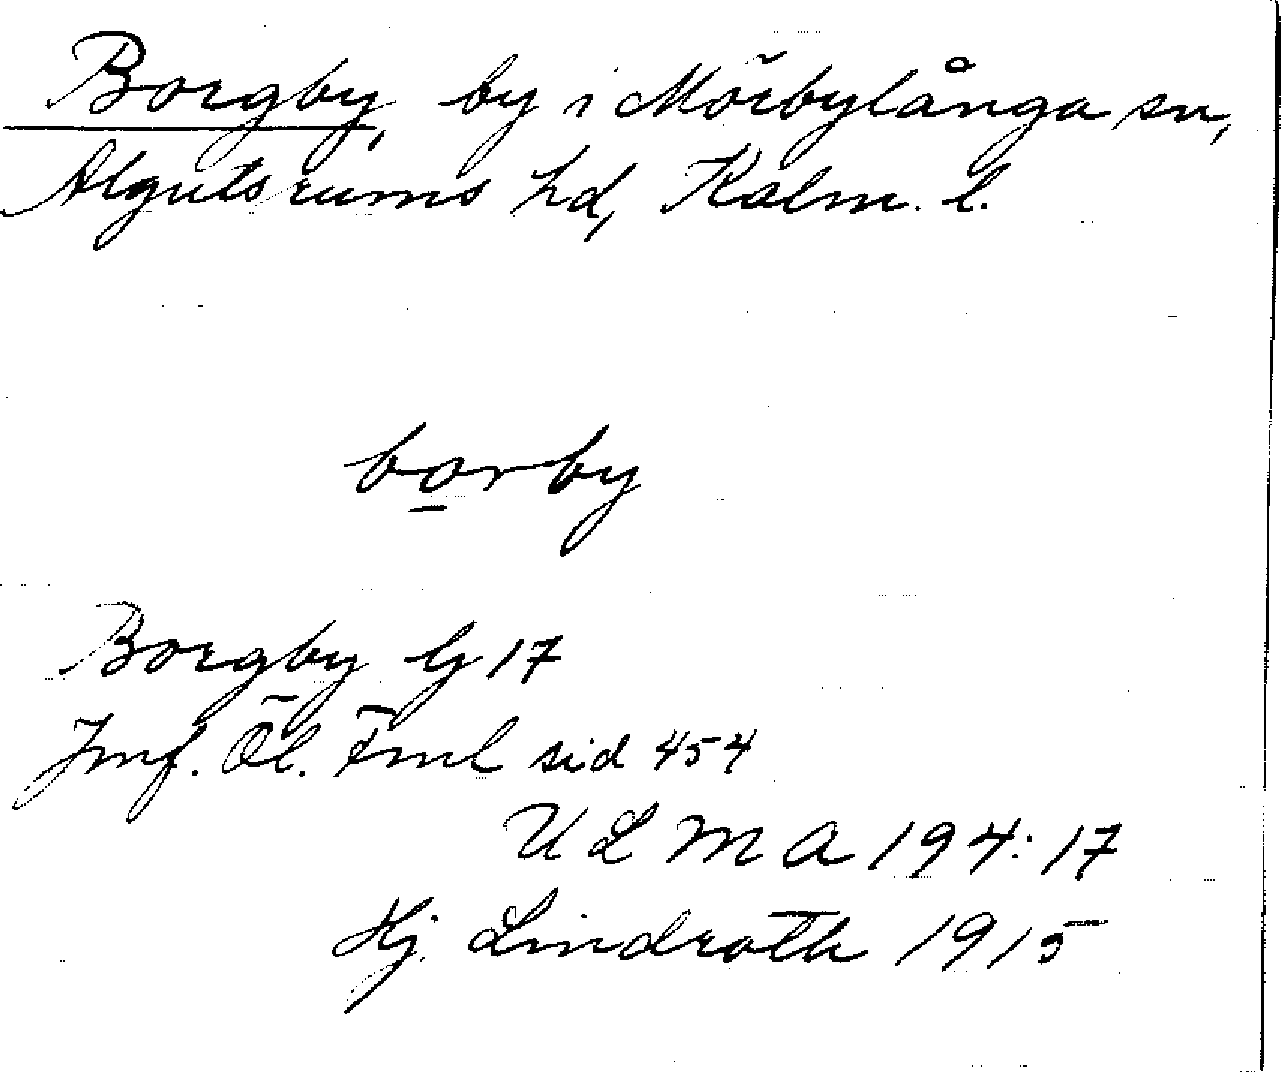 Borgby, by i Mörbylånga sn,
Algutsrums hd, Kalm. l.
borby
Borgby G 17
Jmf. Öl. Fml sid 454
ULMA 194:17
Hj. Lindroth 1915